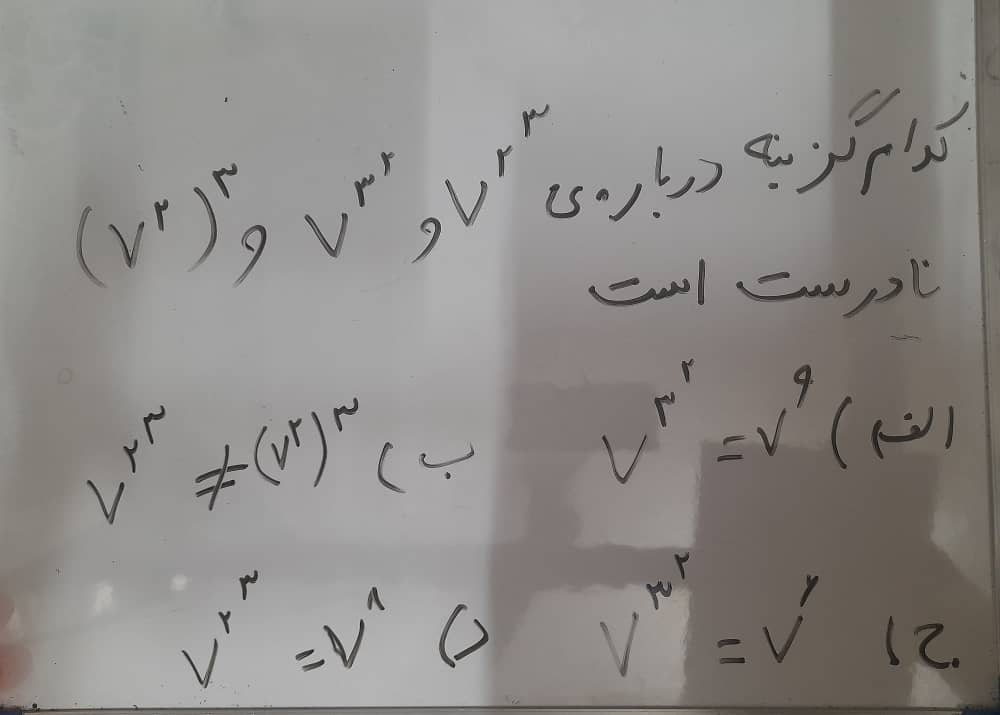 کدام گزینه درباره‌ی ۷^۲^۳ و ۷^۳^۲ و (۷^۲)^۳
نادرست است
الف) ۷^۳^۲ = ۷^۹ ب) ۷^۲^۳ ≠ (۷^۲)^۳
ج) ۷^۳^۲ = ۷^۶ د) ۷^۲^۳ = ۷^۸